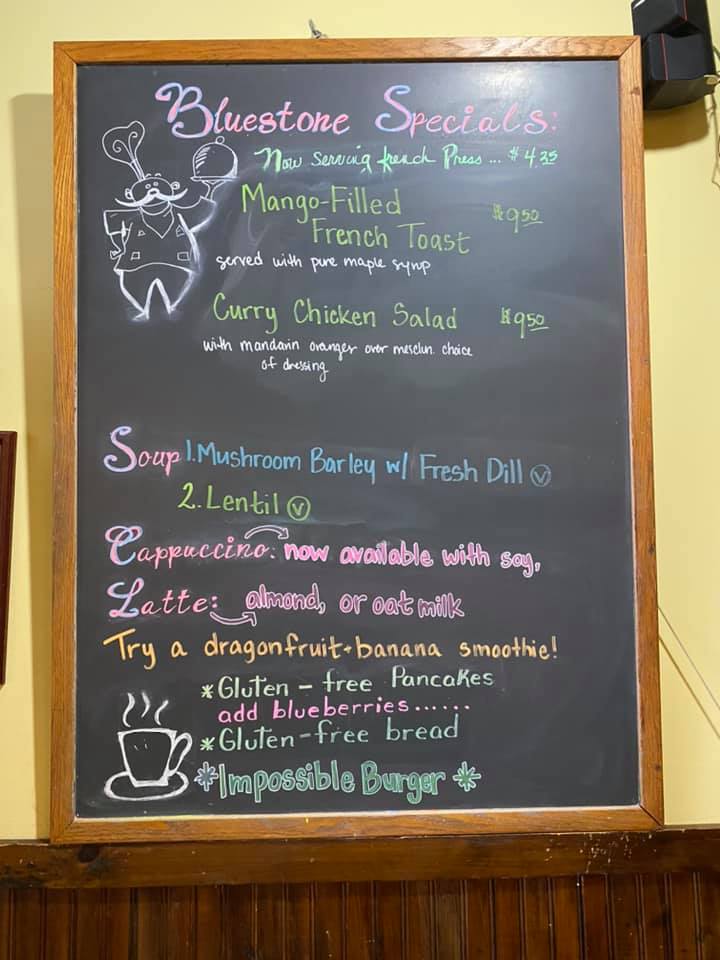 Bluestone Specials:
Now serving french Press ... $4.25
Mango-Filled
French Toast $9.50
served with pure maple syrup
Curry Chicken Salad $9.50
with mandarin oranges over mesclun. choice
of dressing
Soup 1. Mushroom Barley w/ Fresh Dill Ⓥ
2. Lentil Ⓥ
Cappuccino: now available with soy,
Latte: almond, or oat milk
Try a dragonfruit + banana smoothie!
* Gluten - free Pancakes
add blueberries......
* Gluten-free bread
*Impossible Burger *